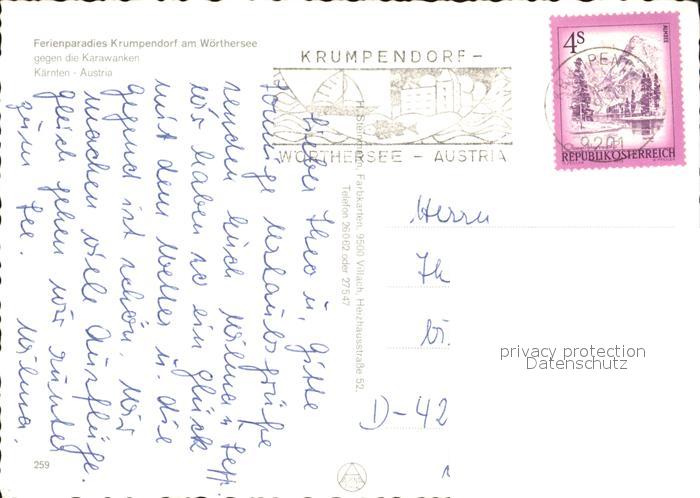 Ferienparadies Krumpendorf am Wörthersee
gegen die Karawanken
Kärnten - Austria
KRUMPENDORF-
WÖRTHERSEE - AUSTRIA
4S
ALMSEE
REPUBLIK ÖSTERREICH
Lieber Theo u. Gitte
Sonnige Urlaubsgrüße
senden Euch Wilma u. Sepp.
Wir haben so ein Glück
mit dem Wetter u. die
Gegend ist schön. Wir
machen viele Ausflüge.
Gleich gehen wir runter
zum See. Wilma.
H. Farbkarten, 9500 Villach, Herzhausstraße 52,
Telefon 26082 oder 27547
Herrn
Th
D-42
privacy protection
Datenschutz
259